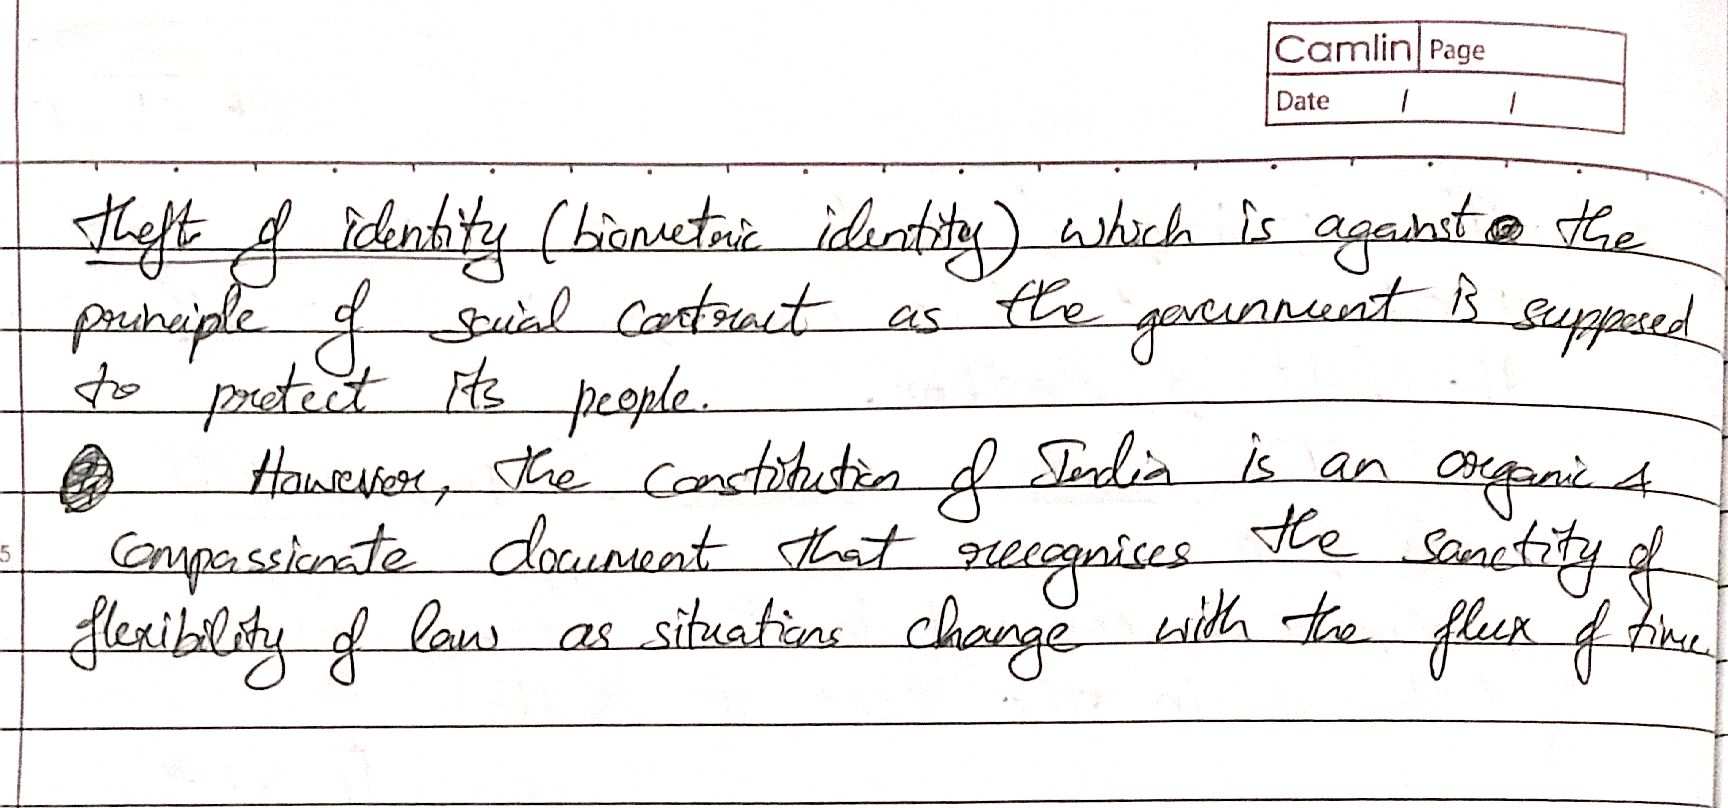 Camlin Page
Date / /
theft of identity (biometric identity) which is against the
principle of social contract as the government is supposed
to protect its people.
However, the Constitution of India is an organic &
5
compassionate document that recognises the sanctity of
flexibility of law as situations change with the flux of time.